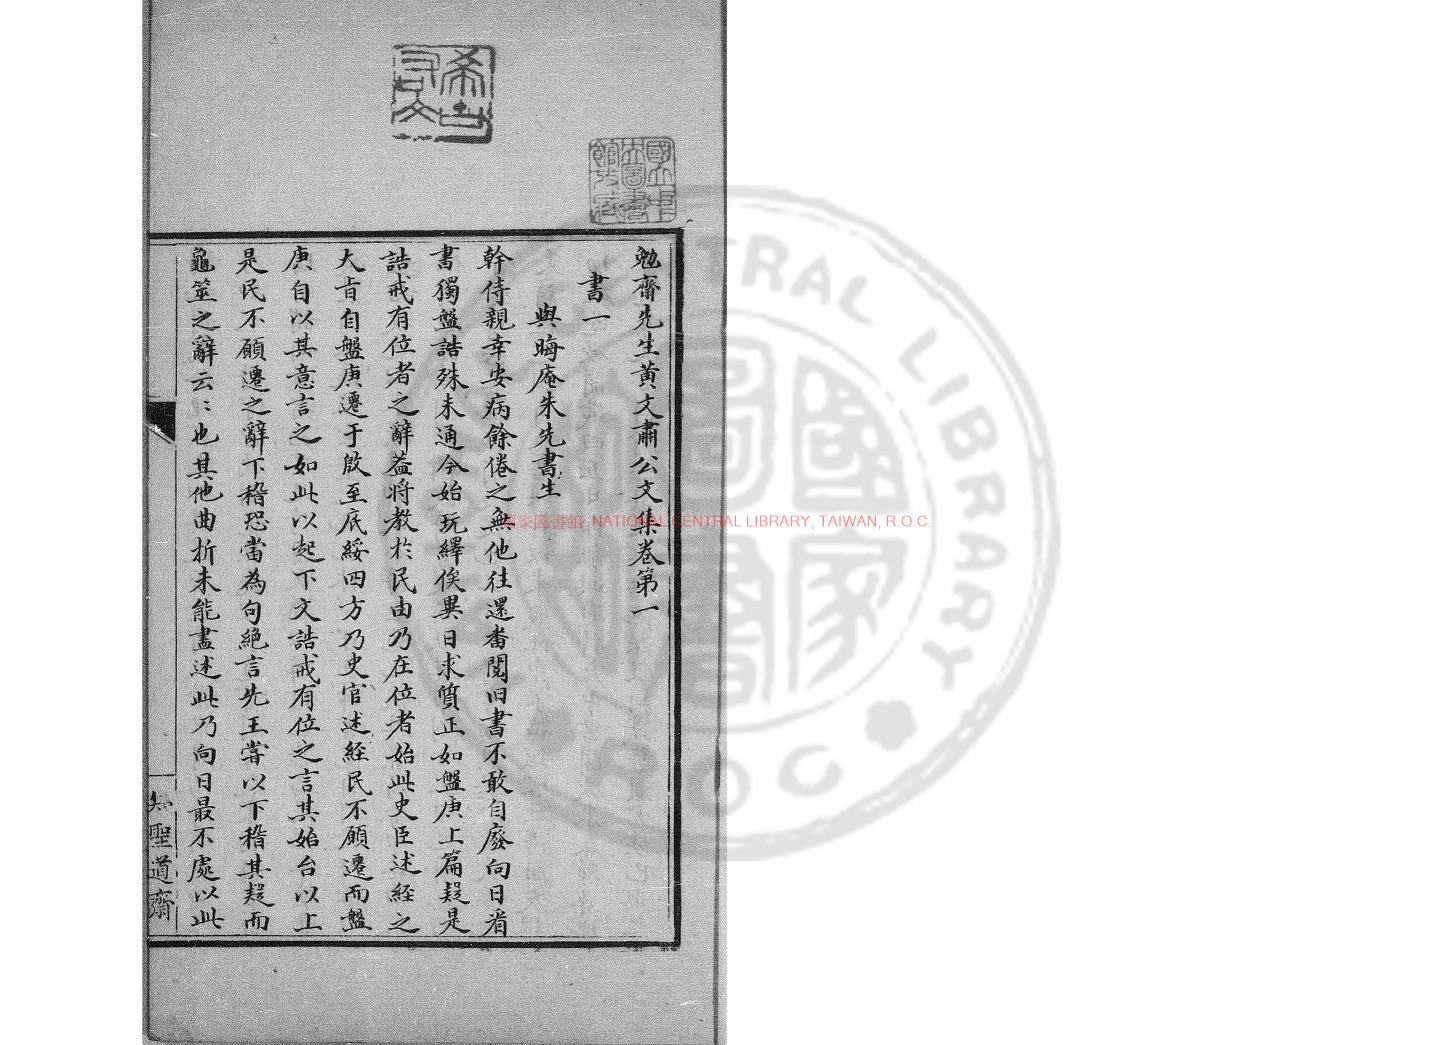 勉齋先生黃文肅公文集卷第一
書一
與晦庵朱先書生
幹侍親幸安病餘倦之無他往還畨閱旧書不敢自廢向日看
書獨盤誥殊未通今始玩繹俟異日求質正如盤庚上篇疑是
誥戒有位者之辭葢将教於民由乃在位者始此史臣述經之
大旨自盤庚遷于殷至底綏四方乃史官述経民不願遷而盤
庚自以其意言之如此以起下文誥戒有位之言其始台以上
是民不願遷之辭下稽恐當為句絶言先王嘗以下稽其疑而
龜筮之辭云云也其他曲折未能盡述此乃向日最不處以此
知聖道齋
希古右文
國立中央圖書館收藏
國家圖書館 NATIONAL CENTRAL LIBRARY, TAIWAN, R.O.C.
CENTRAL LIBRARY
ROC
國家圖書